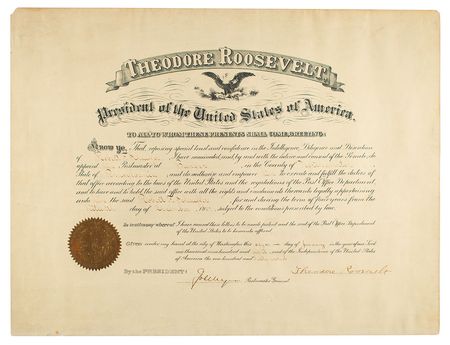 THEODORE ROOSEVELT,
President of the United States of America.
TO ALL TO WHOM THESE PRESENTS SHALL COME, GREETING:
Know ye, That, reposing special trust and confidence in the Intelligence, Diligence and Discretion
of I have nominated, and, by and with the advice and consent of the Senate, do
appoint Postmaster at in the County of
State of and do authorize and empower to execute and fulfill the duties of
that office according to the laws of the United States and the regulations of the Post Office Department,
and to have and to hold the said office, with all the rights and emoluments thereunto legally appertaining
unto the said for and during the term of four years from the
day of subject to the conditions prescribed by law.
In testimony whereof, I have caused these letters to be made patent and the seal of the Post Office Department
of the United States to be hereunto affixed.
Given under my hand at the city of Washington this day of in the year of our Lord
one thousand nine hundred and and of the Independence of the United States
of America the one hundred and
By the PRESIDENT: Theodore Roosevelt
Postmaster General